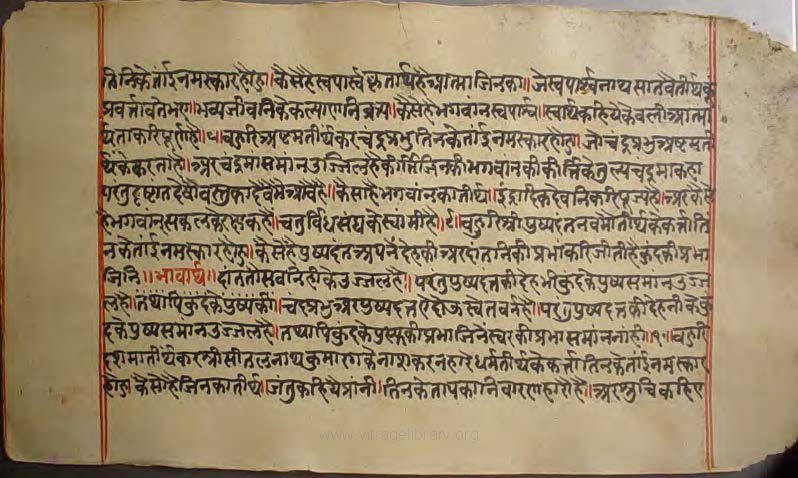 तिनिकेतांई नमस्कार होहु। कैसे है सुपार्स्व कृतार्थ है आत्मा जिनका। जे सुपार्स्वनाथ सातवै तीर्थकूं
प्रवर्त्तावते भए। भव्यजीवनिके कल्याणनि। कैसे है भगवान सुपार्स्व। स्वार्थ कहिये केवली आत्मा
र्थता करि पूर्ण है। बहुरि अष्टम तीर्थंकर चंद्रप्रभु तिनकेतांई नमस्कार होहु। जो चंद्रप्रभु अष्टम ती
र्थके करता है। अर चंद्रमा समान उज्जल है कीर्ति जिनकी भगवानकी कीर्त्तिके तुल्य चंद्रमा कहा
परंतु दृष्टांत देवो वस्तुका है कैसा है भगवानका तीर्थ। इंद्रादिक देवनि करि पूज्य है। अर कैसे
है भगवान सकल है। चतुर्विध संघके स्वामी है। बहुरि श्री पुष्पदंत नवमे तीर्थके कर्त्ता ति
नकेतांई नमस्कार होहु। कैसे है पुष्पदंत अपने देहकी अर दांतनिकी प्रभा करि जीती है कुंदकी प्रभा
जिनि॥ भावार्थ॥ दांत तो सबनिहीके उज्जल है। परंतु पुष्पदंतकी देह भी कुंदके पुष्प समान उज्ज
ल है। तथापि कुंदके पुष्पकी। चंद्रप्रभु अर पुष्पदंत ए दोऊ स्वेत वर्न है। परंतु पुष्पदंतकी देह कुं
दके पुष्प समान उज्जल है। तथापि कुंदके पुष्पकी प्रभा जिनेस्वरकी प्रभा समान नांही। बहुरि
दशमा तीर्थंकर श्री सीतलनाथ कुमारगके नाश करनहारे धर्मतीर्थके कर्त्ता तिनकेतांई नमस्कार
होहु। कैसो है जिनका तीर्थ। जंतु कहियै प्रानी। तिनके तापका निवारणहारा है। अर सुचि कहिए
www.vitragelibrary.org